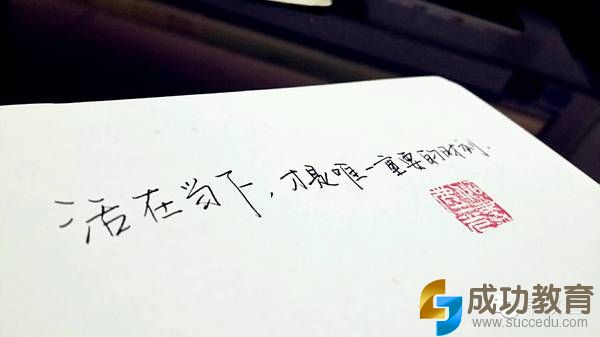 活在当下，才是唯一重要的时刻.
成功教育
www.succedu.com